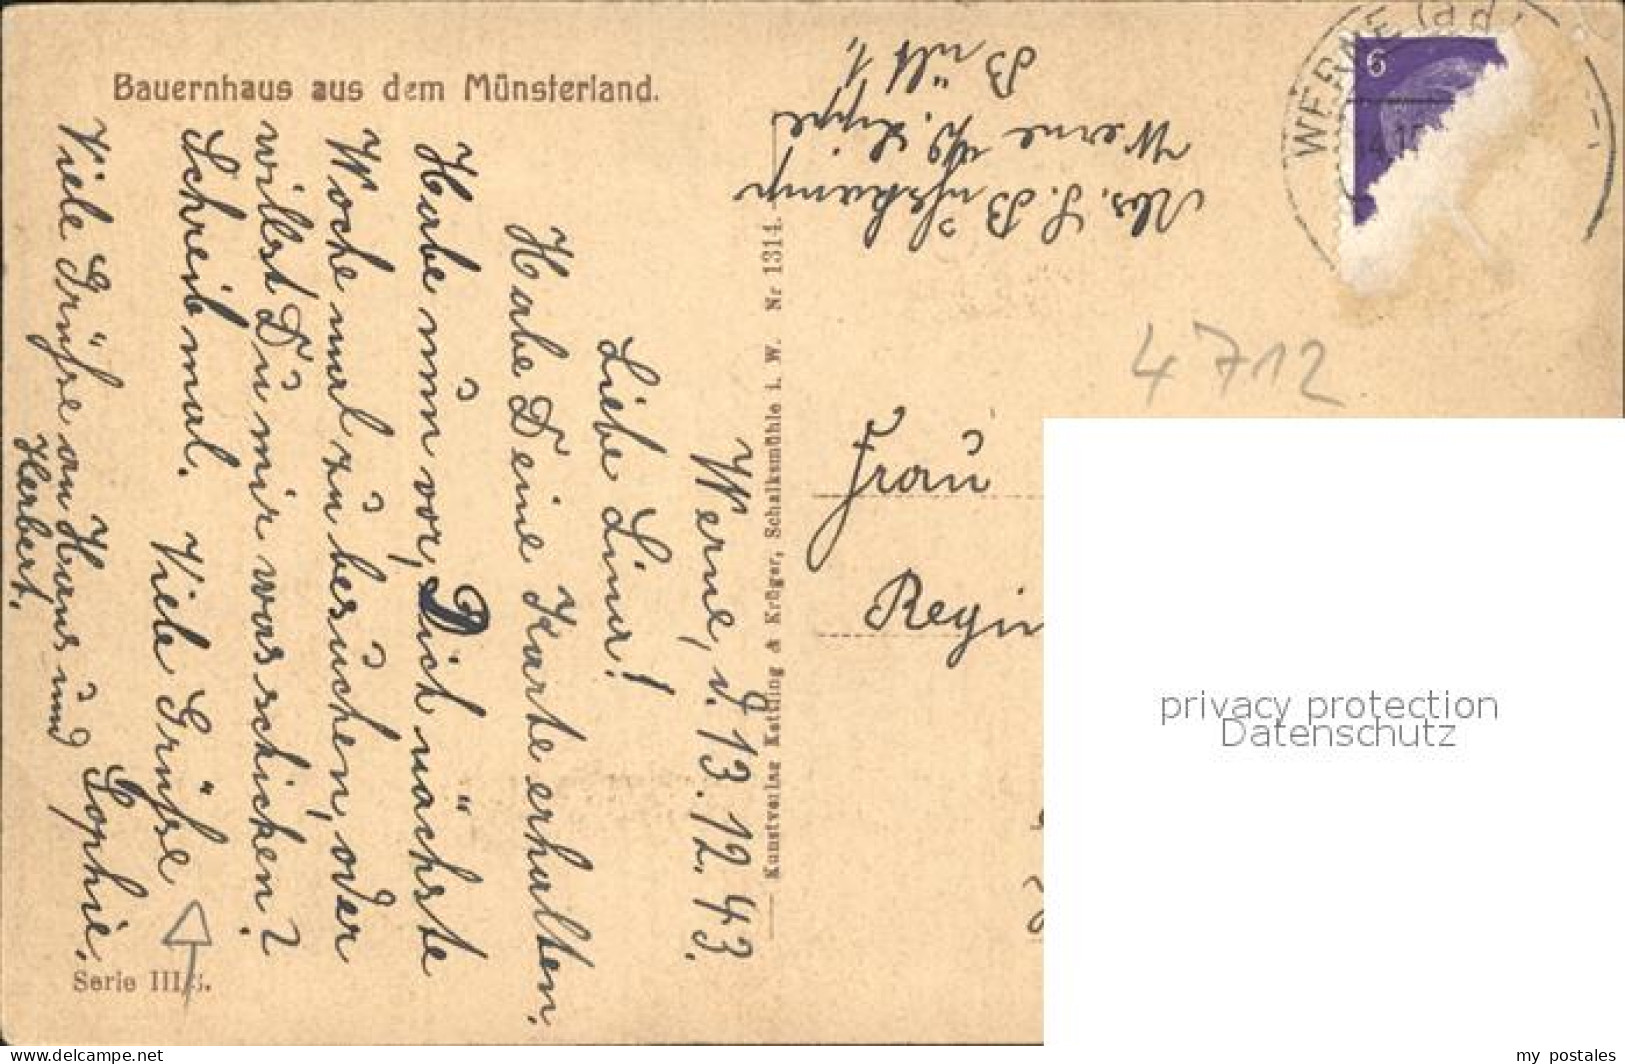 Bauernhaus aus dem Münsterland.
Werne, d. 13. 12. 43.
Liebe Lina!
Habe Deine Karte erhalten.
Habe nun vor, Dich nächste
Woche mal zu besuchen, oder
willst Du mir was schicken?
Schreib mal. Viele Grüße
Sophie.
Viele Grüße an Hans und
Herbert.
Serie III/6.
Kunstverlag Kattling & Krüger, Schalksmühle i. W. Nr 1314.
Abs. S.
Werne a/d Lippe
Bült 1,
WERNE (
6
4712
Frau
Regin
privacy protection
Datenschutz
www.delcampe.net
my_postales